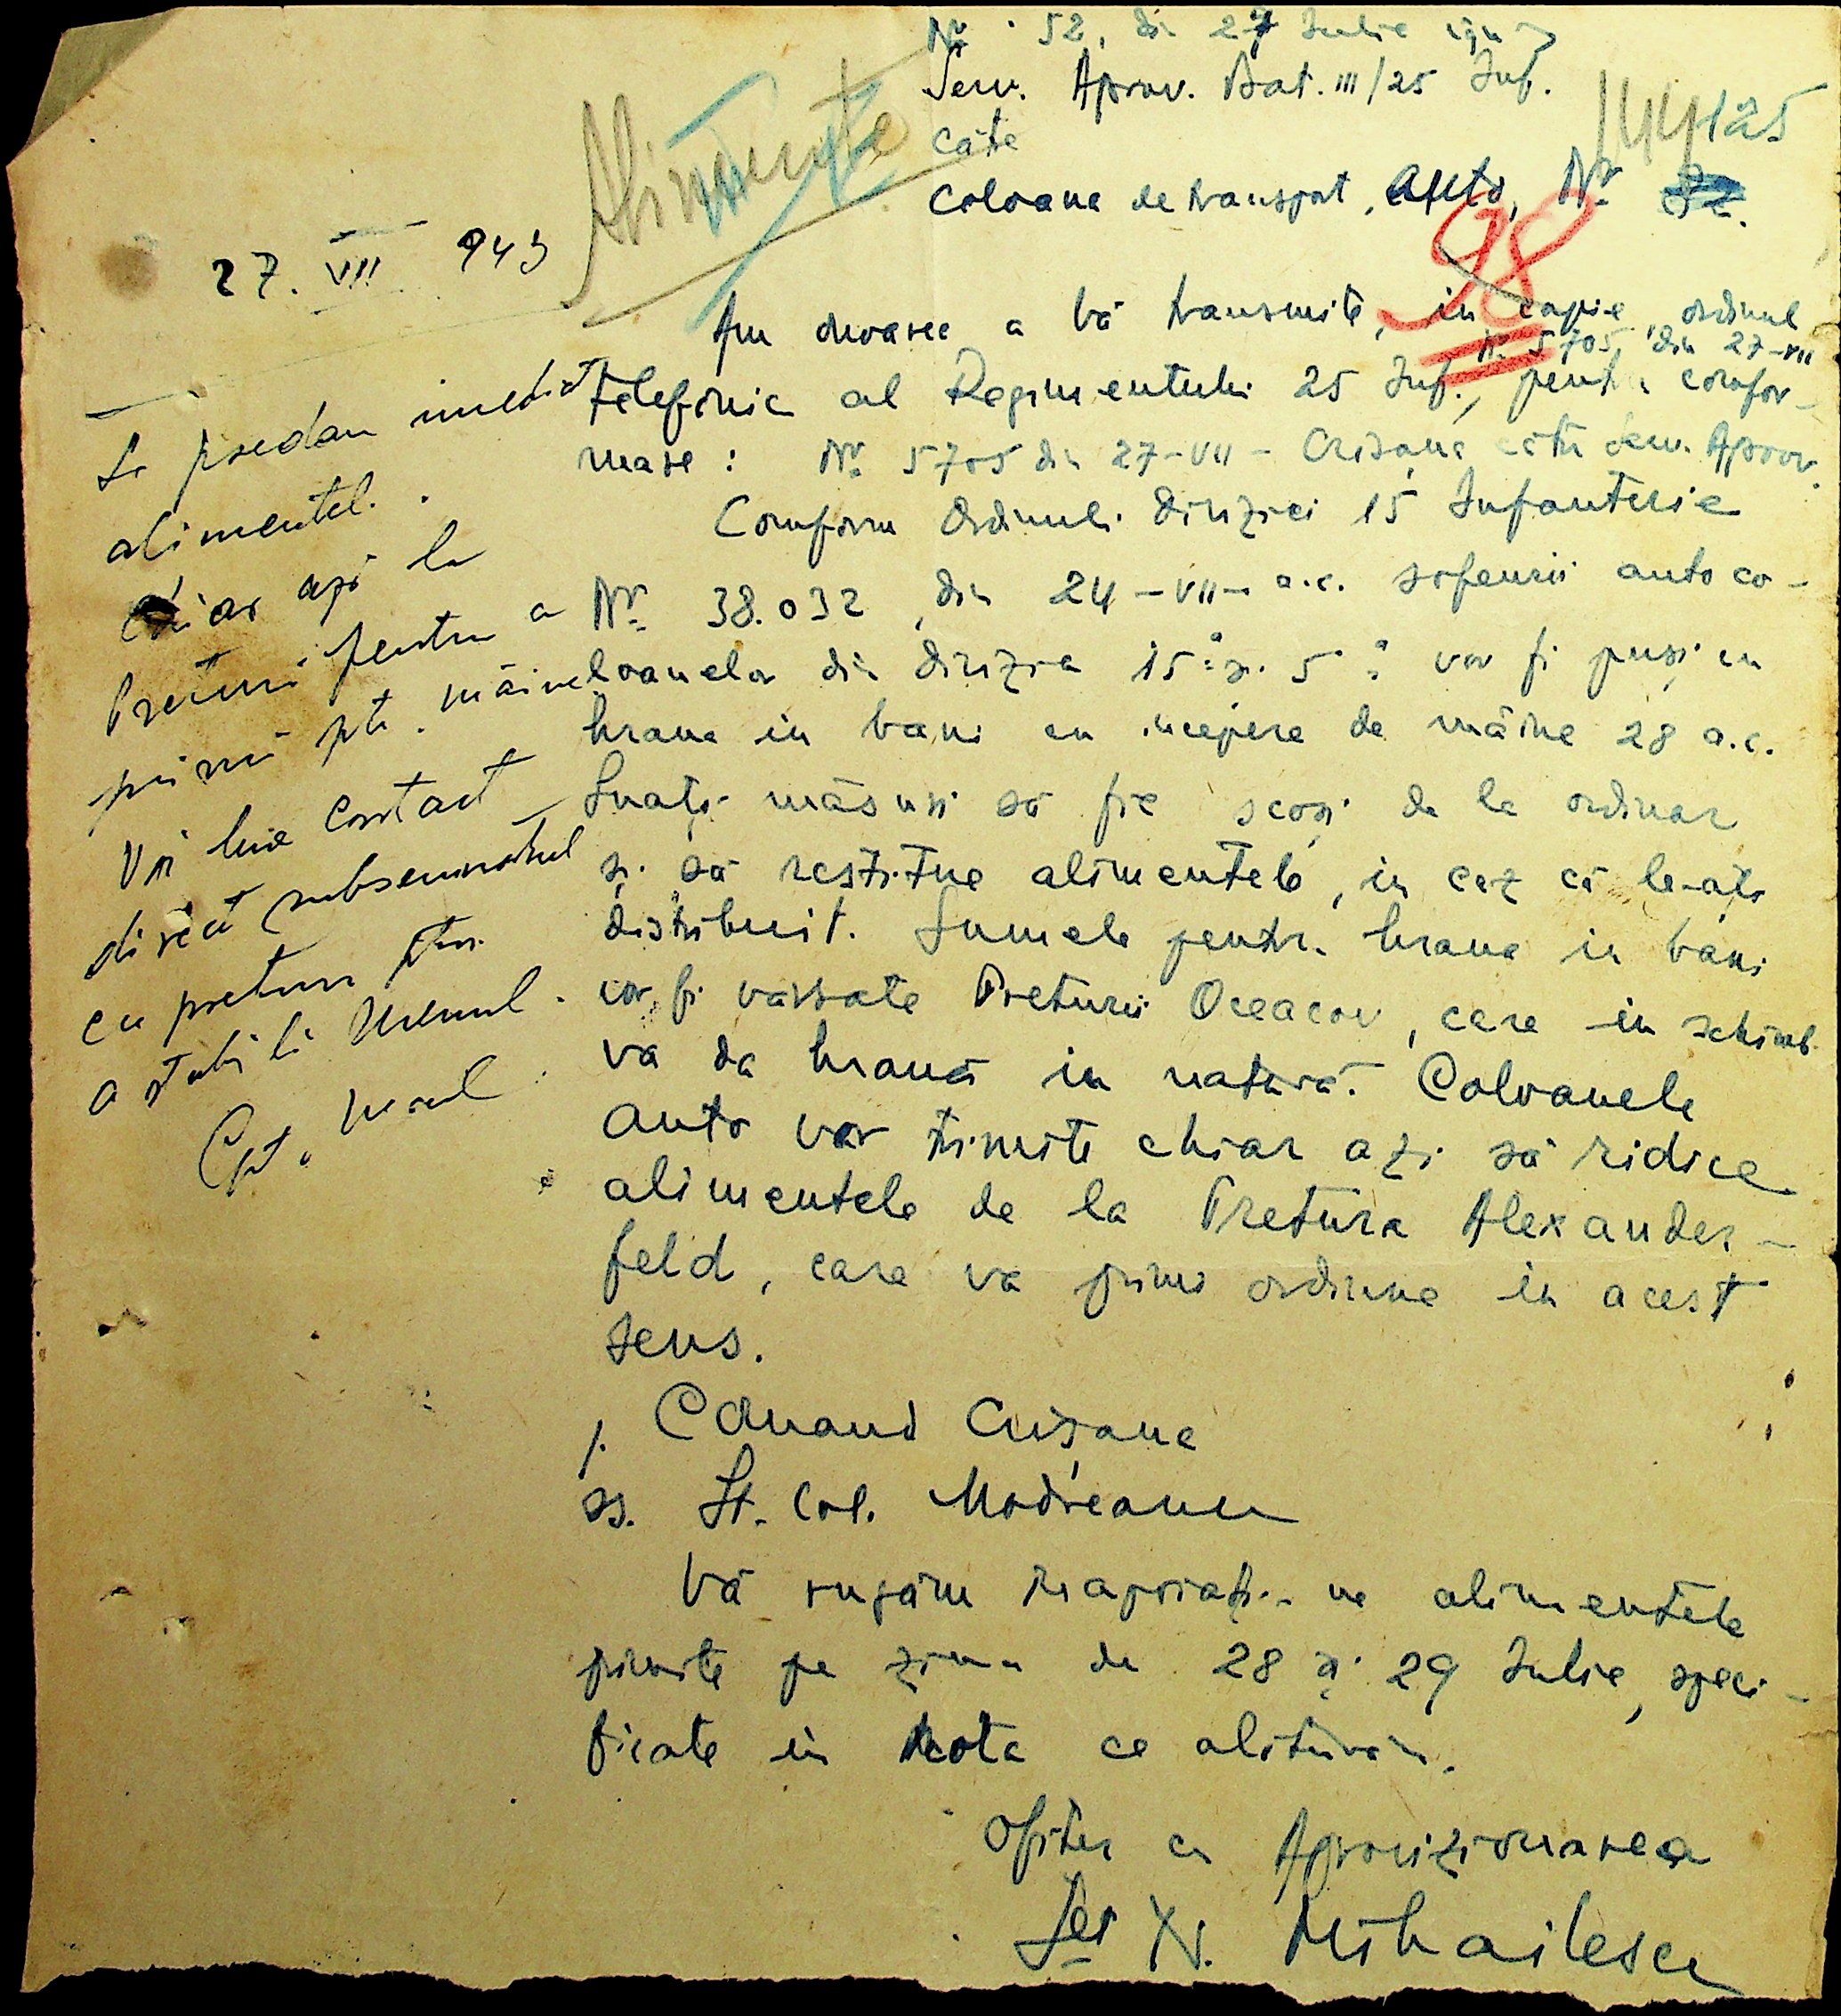 Nr. 52, din 27 Iulie
Serv. Aprov. Bat. III/25 Inf.
către
Coloana de transport, auto, Nr.
144125
Alimente
98
27. VII 943
Am onoarea a vă transmite, in copie, ordinul
Nr. 5705, din 27-VII
telefonic al Regimentului 25 Inf., pentru confor-
mare: Nr. 5705 din 27-VII- Crișana către Serv. Aprov.
Conform Ordinului Diviziei 15 Infanterie
Nr. 38.032, din 24-VII- a.c. șoferii autoco-
loanelor din divizia 15-a și 5-a vor fi puși cu
hrana in bani cu incepere de mâine 28 a.c.
Luați măsuri să fie scoși de la ordinar
și să restitue alimentele, in caz că le-ați
distribuit. Sumele pentru hrana in bani
vor fi vărsate Preturii Oceacov, care in schimb
va da hrană in natură. Coloanele
auto vor trimite chiar azi să ridice
alimentele de la Pretura Alexander-
feld, care va primi ordine in acest
sens.
p. Comand Crișana
ss. Lt. Col. Modreanu
Vă rugăm inapoiați-ne alimentele
primite pe ziua de 28 și 29 Iulie, speci-
ficate in nota ce alăturăm.
Ofițer cu Aprovizionarea
N. Mihailescu
Se predau imediat
alimentel.
Chiar azi la
Preturi pentru a
primi ptr. mâine
Voi lua contact
direct subsemnatul
cu pretura ptr.
a stabili
Cpt.